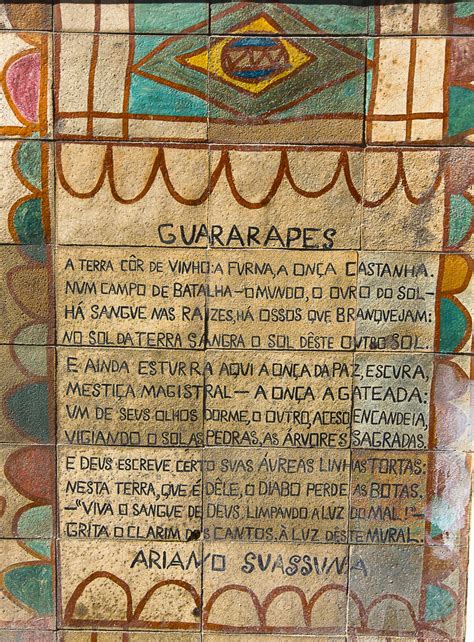 GUARARAPES
A TERRA CÔR DE VINHO: A FURNA, A ONÇA CASTANHA.
NUM CAMPO DE BATALHA—O MUNDO, O OURO DO SOL—
HÁ SANGUE NAS RAIZES, HÁ OSSOS QUE BRANQUEJAM:
NO SOL DA TERRA SANGRA O SOL DÊSTE OUTRO SOL.
E AINDA ESTURRA AQUI A ONÇA DA PAZ, ESCURA,
MESTIÇA MAGISTRAL—A ONÇA A GATEADA:
UM DE SEUS OLHOS DORME, O OUTRO, ACESO ENCANDEIA,
VIGIANDO O SOL AS PEDRAS, AS ÁRVORES SAGRADAS.
E DEUS ESCREVE CERTO SUAS ÁUREAS LINHAS TORTAS:
NESTA TERRA, QUE É DÊLE, O DIABO PERDE AS BOTAS.
—"VIVA O SANGUE DE DEUS, LIMPANDO A LUZ DO MAL!"—
GRITA O CLARIM DOS CANTOS, À LUZ DÊSTE MURAL.
ARIANO SUASSUNA